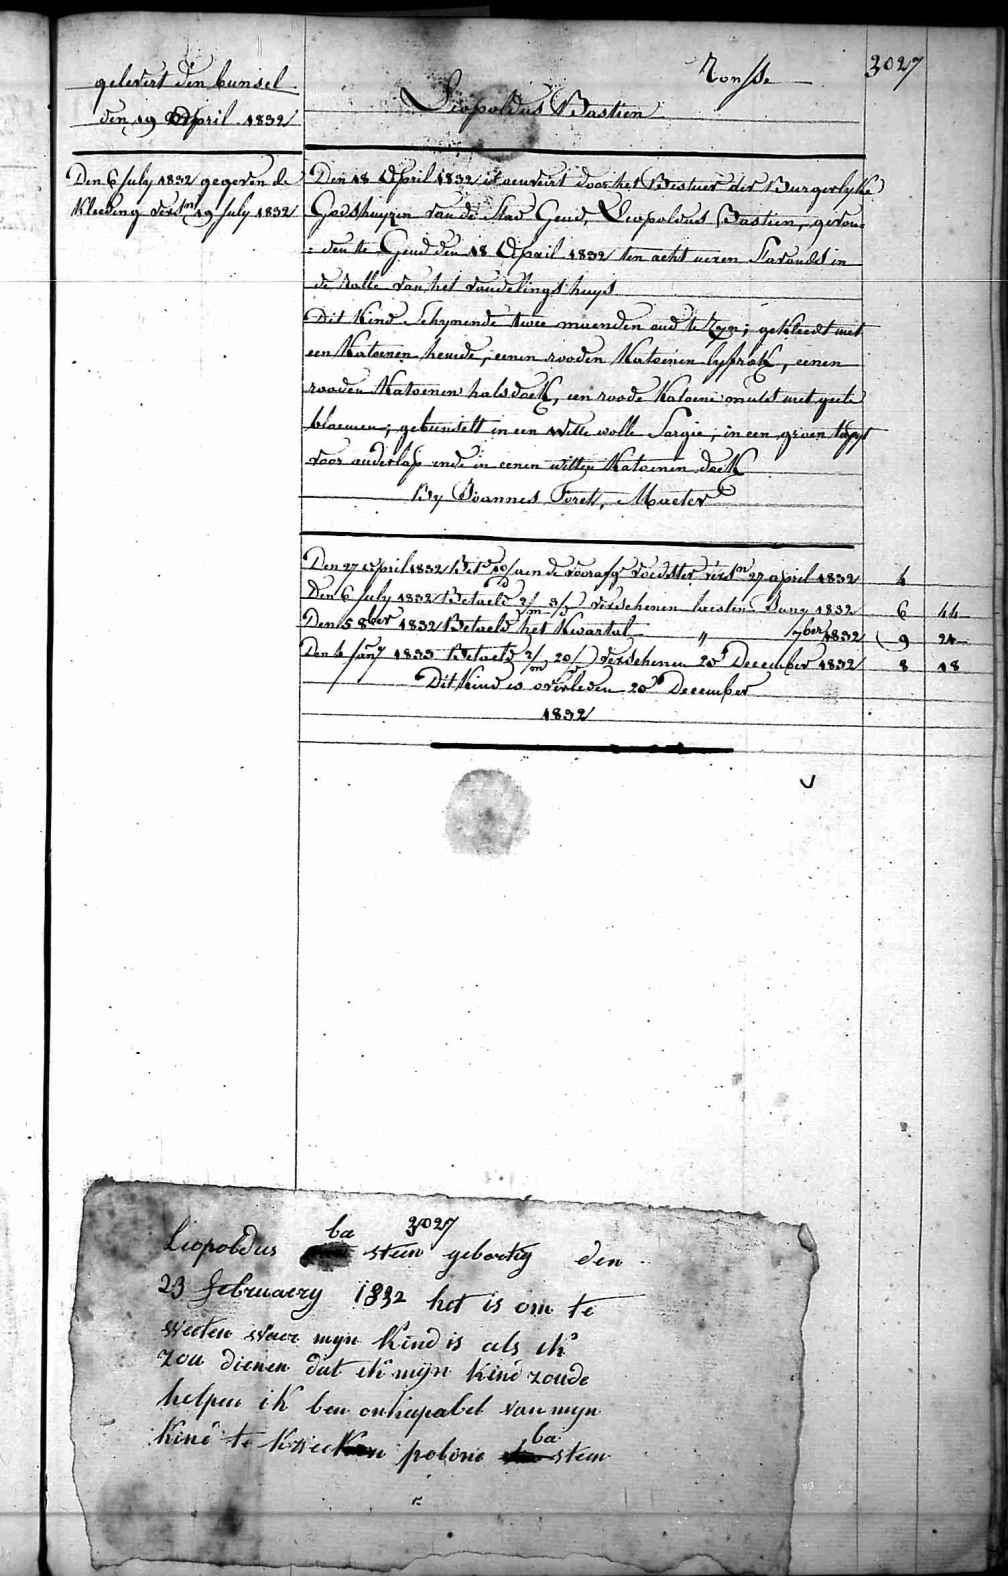 3027
Ronsse
gelevert den bunsel
den 19 April 1832
Leopoldus Bastien
Den 6 July 1832 gegeven de
Kleeding versn 19 July 1832
Den 18 April 1832 is aenveirt door het Bestuer der Burgerlyke
Godshuyzen van de Stad Gend, Leopoldus Bastien, gevon=
=den te Gend den 18 April 1832 ten acht uren s'avonds in
de rolle van het vondelingshuys
Dit Kind schynende twee maenden oud te zyn; gekleedt met
een Katoenen hemde, eenen rooden Katoenen lyfrok, eenen
rooden Katoenen halsdoek, een roode Katoene muts met geele
bloemen; gebunselt in een witte wolle Sargie, in een groen tapyt
voor onderlap ende in eenen witten Katoenen doek
By Joannes Foret, Mueter
Den 27 April 1832 Bete aen de voorafge voedster versn 27 april 1832 4
Den 6 July 1832 Betaeld 2/m 8/d verschenen laesten Juny 1832 6 44
Den 5 8ber 1832 Betaeld het Kwartal " 7ber 1832 9 24
Den 4 Jany 1833 Betaeld 2/m 20/d verschenen 20 December 1832 8 18
Dit Kind is overleden 20 December
1832
3027
Liopoldus ba stein geboortig den
23 februaery 1832 het is om te
weeten waer myn kind is als ik
zou dienen dat ik mijn kind zoude
helpen ik ben onkapabel van myn
kind te kweeken polone ba stein